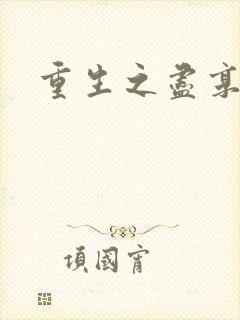 重生之盡
項國甯